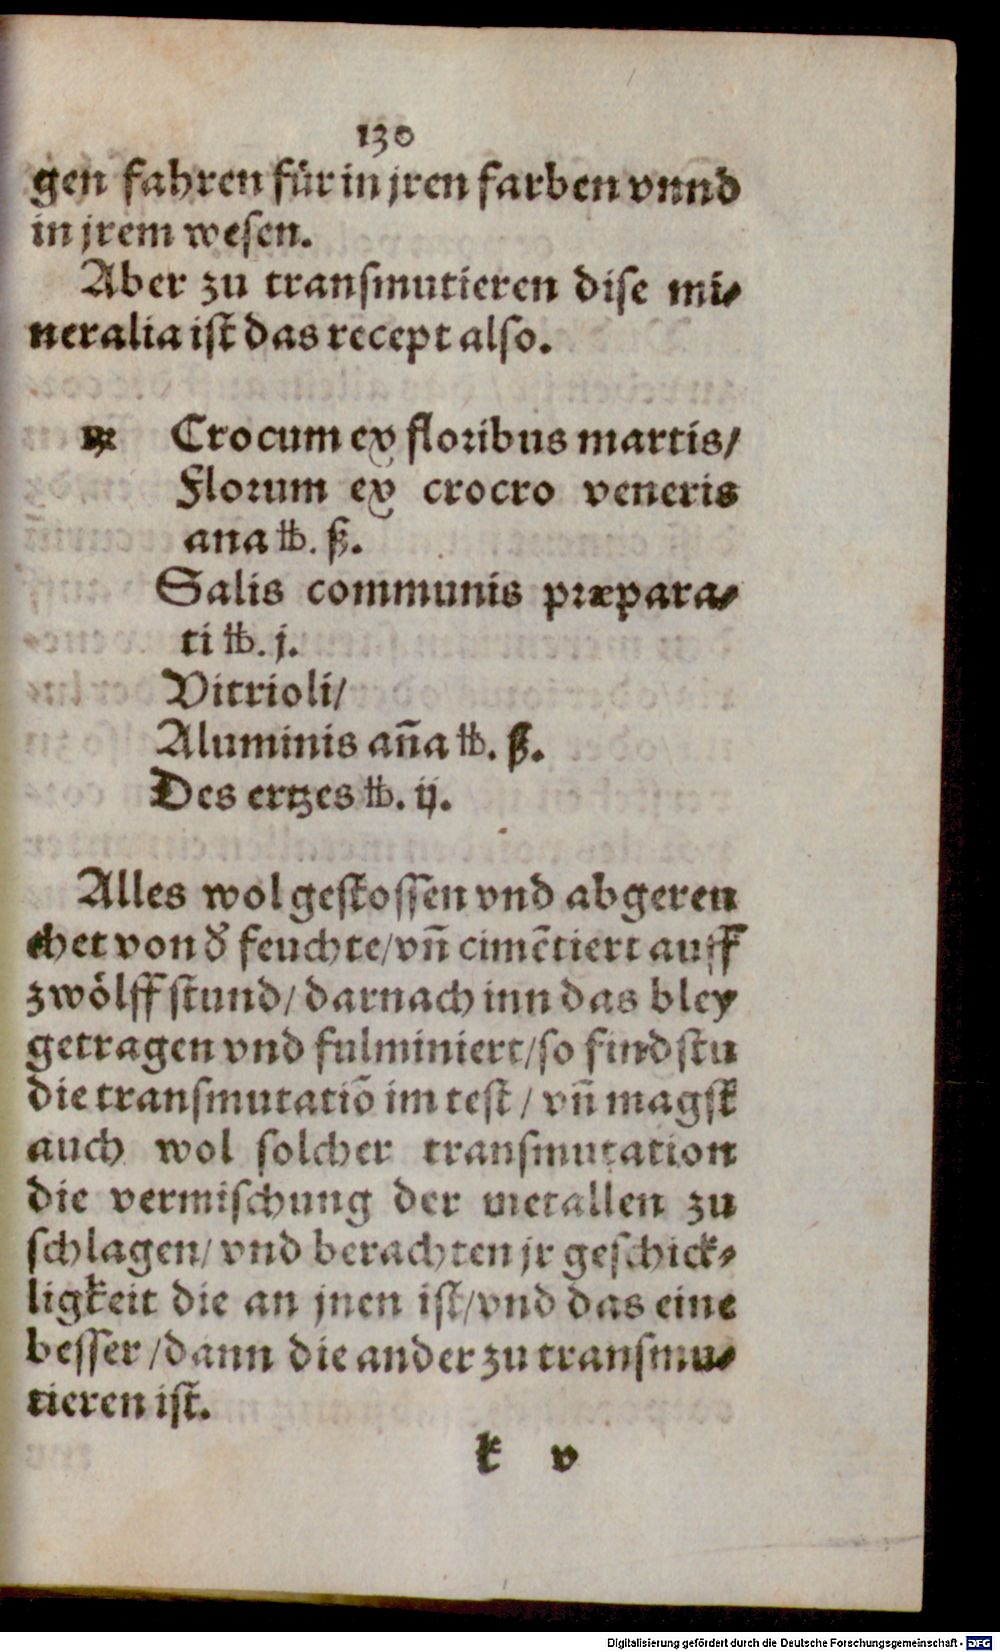 130
gen fahren für in jren farben vnnd
in jrem wesen.
Aber zu transmutieren dise mi⸗
neralia ist das recept also.
℞ Crocum ex floribus martis/
Florum ex crocro veneris
ana ℔. ß.
Salis communis præpara⸗
ti ℔. j.
Vitrioli/
Aluminis aña ℔. ß.
Des ertzes ℔. ij.
Alles wol gestossen vnd abgeren
chet von d̕ feuchte/vñ cimẽtiert auff
zwölff stund/darnach inn das bley
getragen vnd fulminiert/so findstu
die transmutatiõ im test/vñ magst
auch wol solcher transmutation
die vermischung der metallen zu
schlagen/vnd berachten jr geschick⸗
ligkeit die an jnen ist/vnd das eine
besser/dann die ander zu transmu⸗
tieren ist.
k v
Digitalisierung gefördert durch die Deutsche Forschungsgemeinschaft - DFG